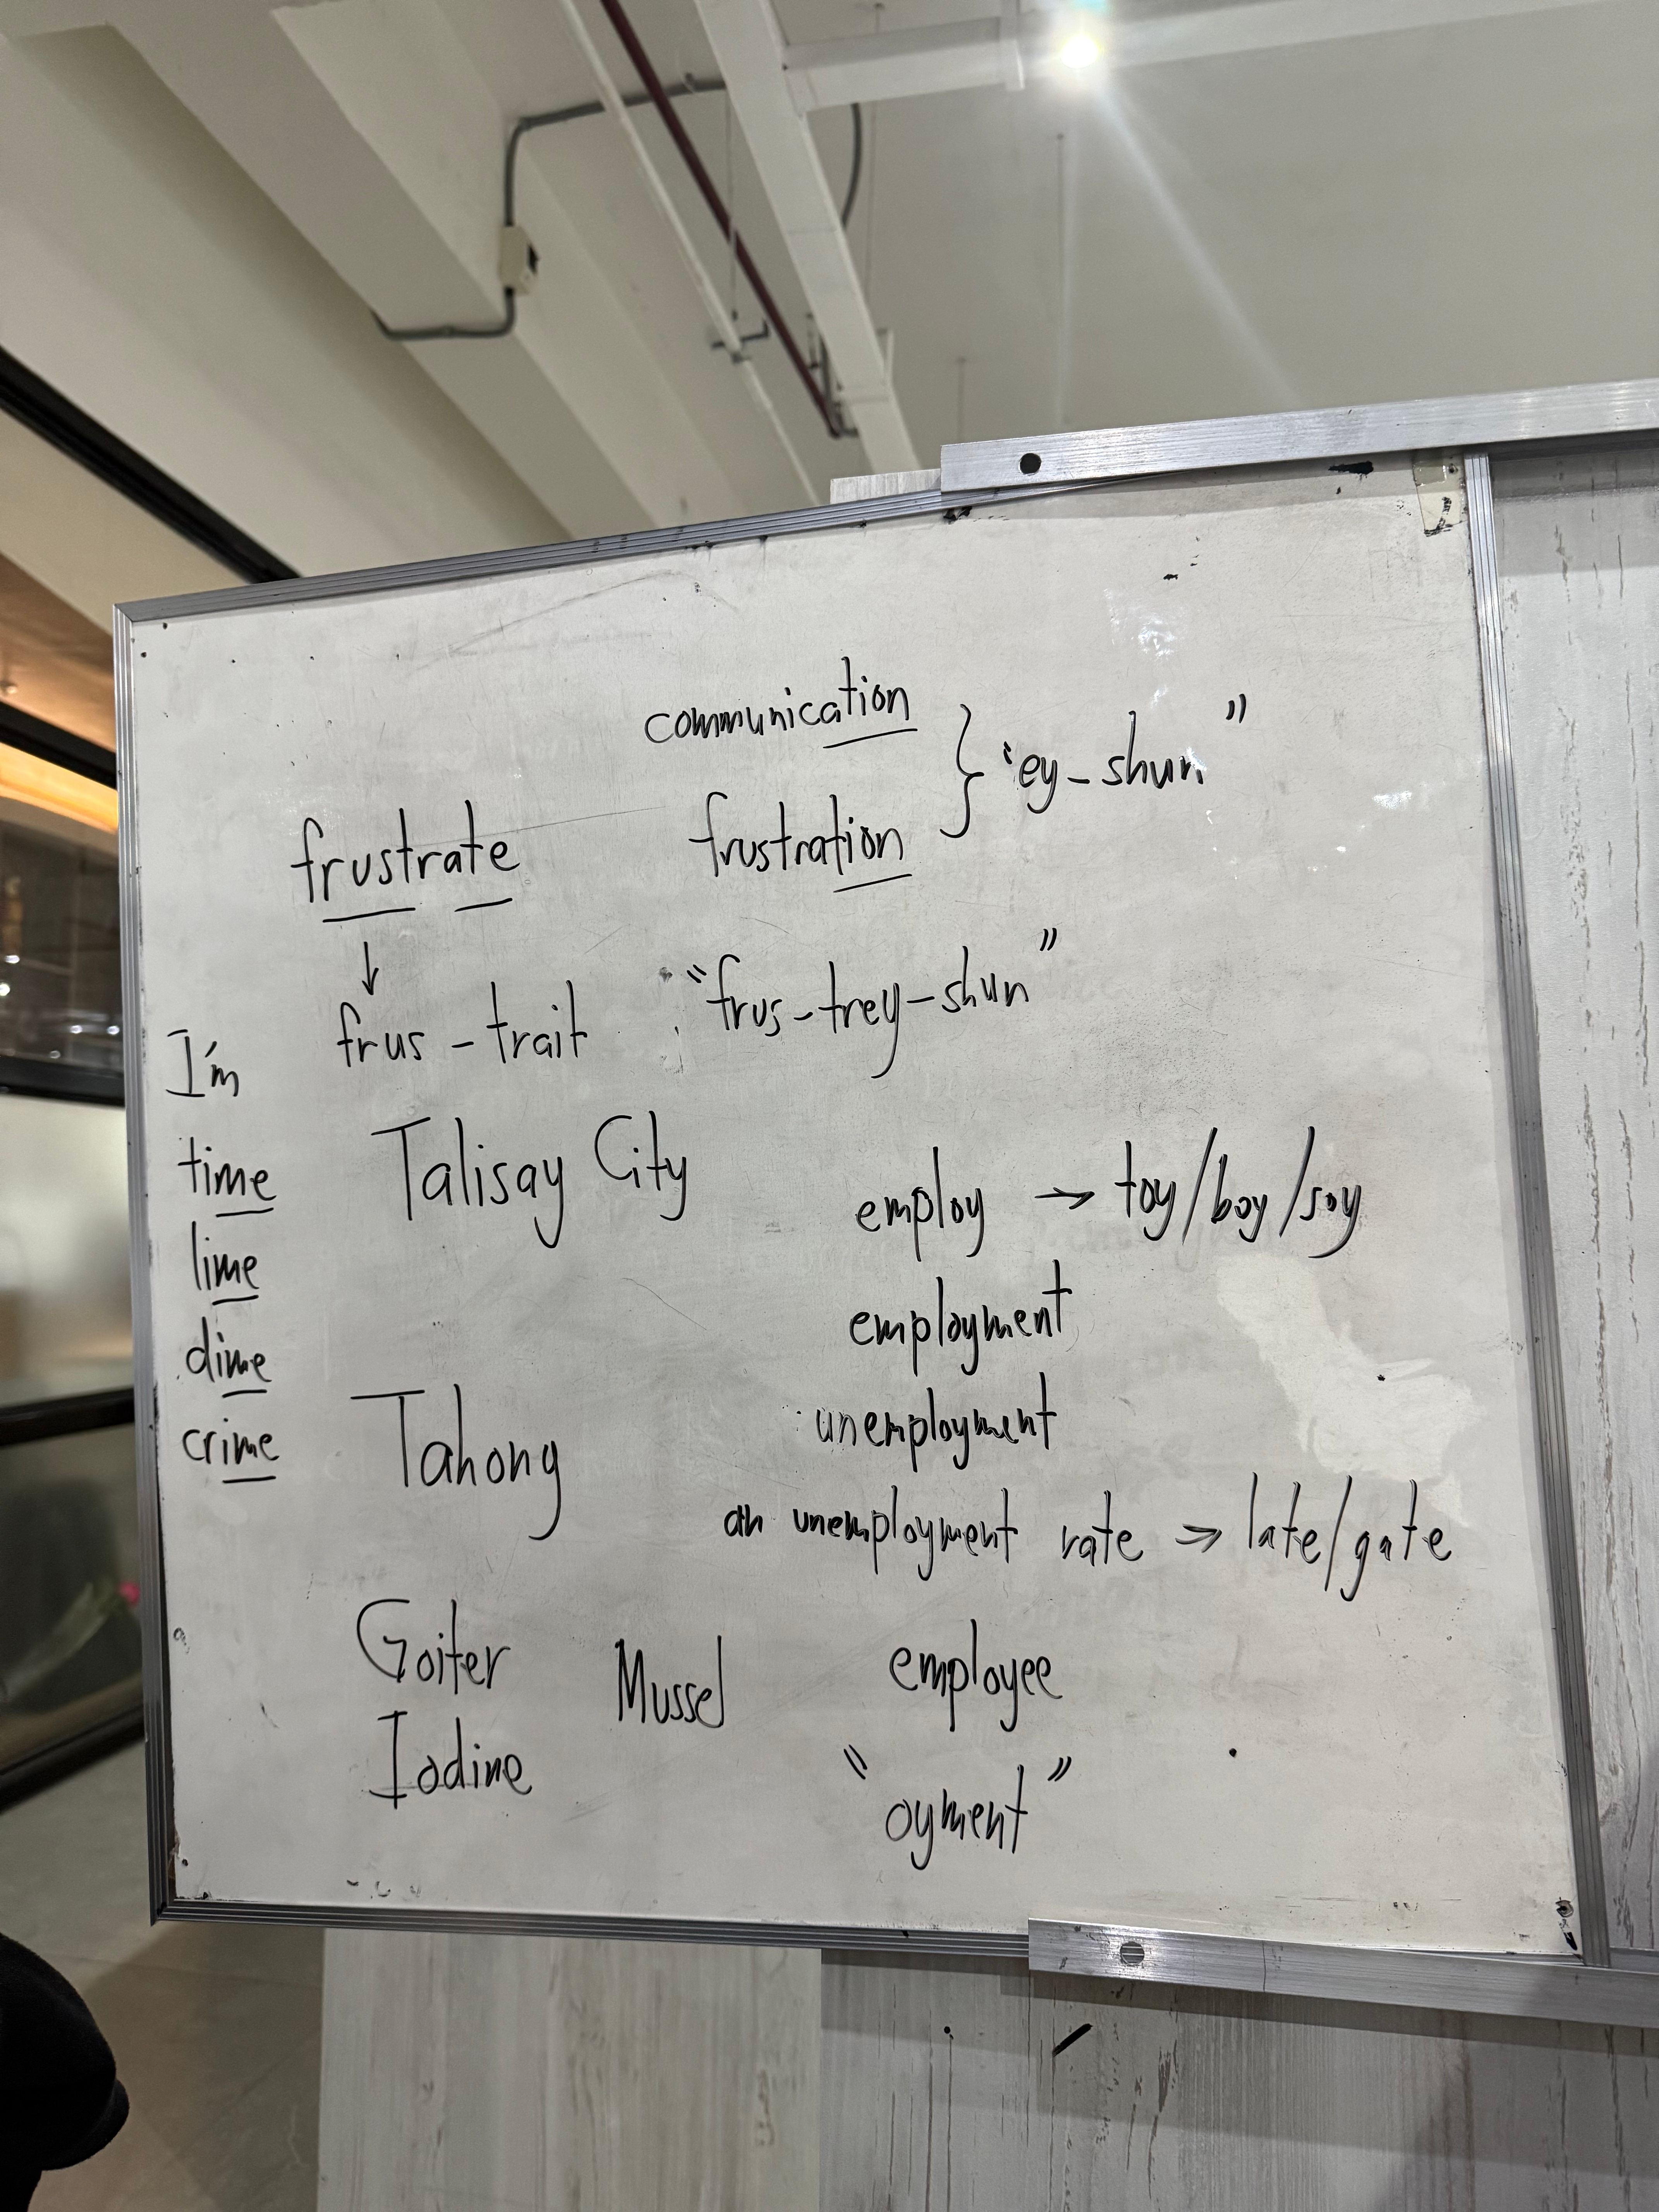 communication
frustration
"ey-shun"
frustrate
↓
frus - trait
"frus-trey-shun"
I'm
time
lime
dime
crime
Talisay City
employ → toy/boy/soy
employment
unemployment
an unemployment rate → late/gate
Tahong
Goiter
Iodine
Mussel
employee
"oyment"